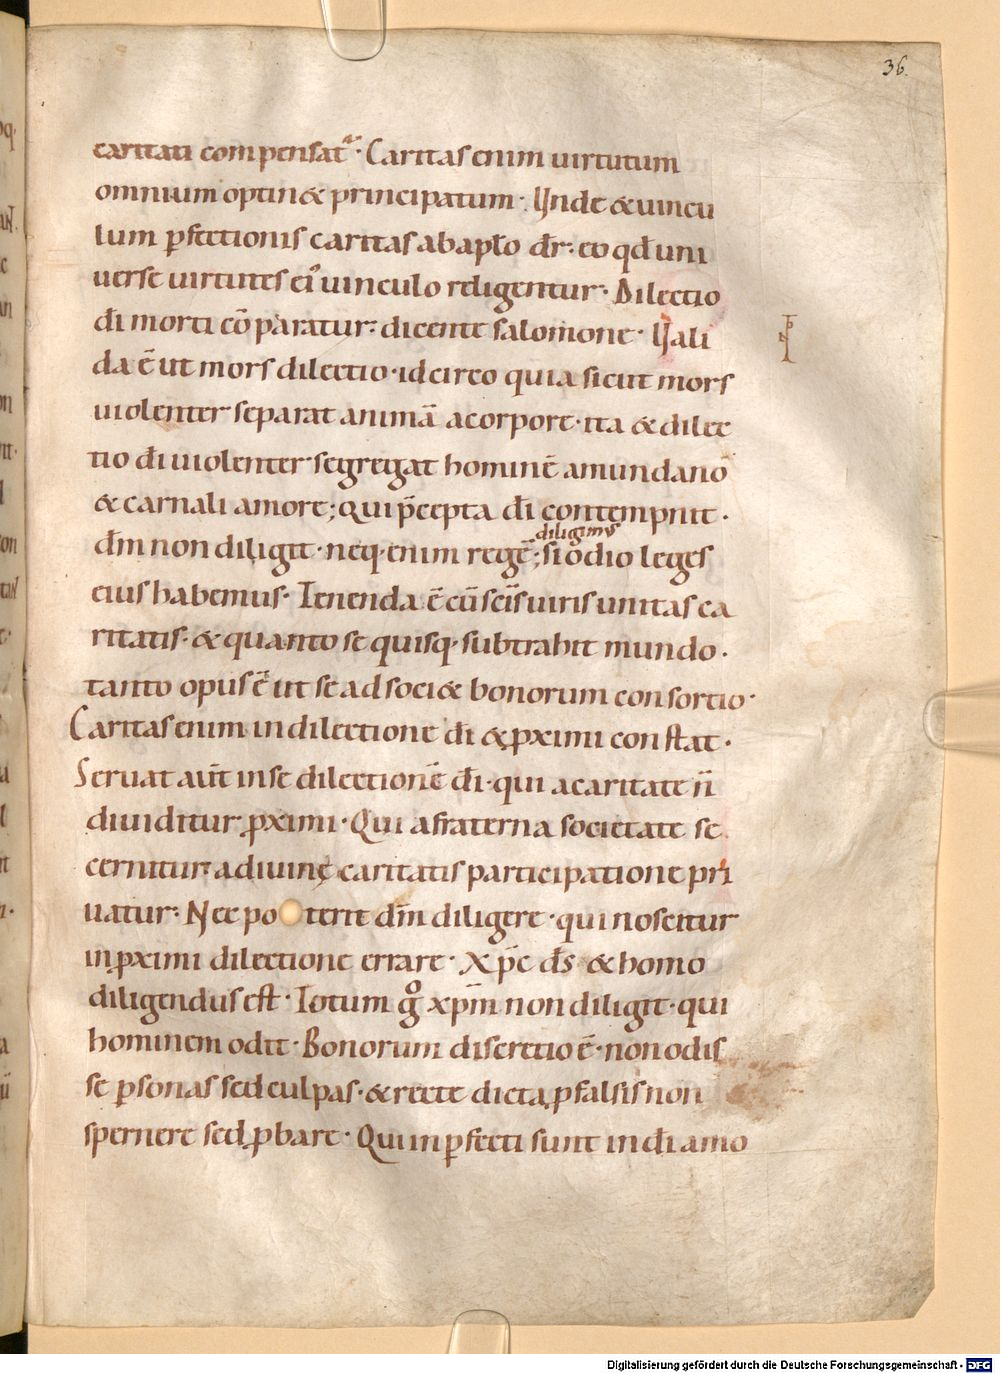 36.
caritati compensat᷑ · Caritas enim uirtutum
omnium optin& principatum · Unde & uincu
lum p̲fectionis caritas ab aplo dr̄ · eo qd̄ uni
uerse uirtutes ei᷒ uinculo religentur · Dilectio
dī morti cōparatur · dicente salomone · Uali
da ē ut mors dilectio · idcirco quia sicut mors
uiolenter separat animā a corpore · ita & dilec
tio dī uiolenter segregat hominē a mundano
& carnali amore ; qui p̄cepta dī contempnit ·
diligimus
dm̄ non diligit · neq· enim regē ; si odio leges
eius habemus · Tenenda ē cū sc̄is uiris unitas ca
ritatis · & quanto se quisq· subtrahit mundo ·
tanto opus ē ut se ad soci& bonorum consortio ·
Caritas enim in dilectione dī & ꝓximi constat ·
Seruat aūt in se dilectionē dī · qui a caritate n̄
diuiditur ꝓximi · Qui a fraterna societate se
cernitur a diuinę caritatis participatione pri
uatur · Nec po terit dm̄ diligere · qui noscitur
in ꝓximi dilectione errare · Xp̄c ds̄ & homo
diligendus est · Totum gͦ xpm̄ non diligit · qui
hominem odit · Bonorum discretio ē · non odis
se p̲sonas sed culpas · & recte dicta ꝓ falsis non
spernere sed ꝓbare · Qui inp̲fecti sunt in dī amo
Digitalisierung gefördert durch die Deutsche Forschungsgemeinschaft - DFG